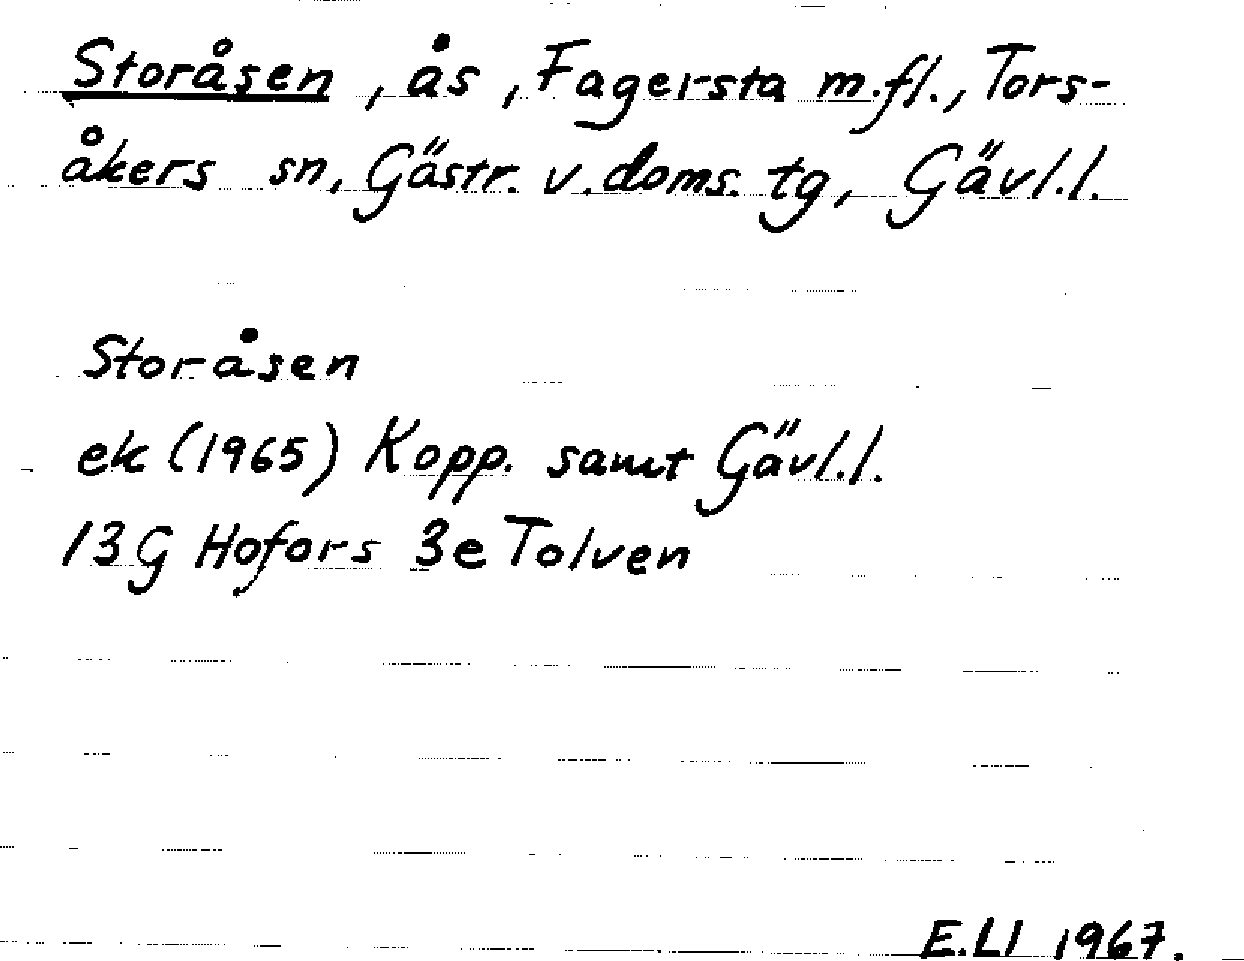 Storåsen, ås, Fagersta m.fl., Tors-
åkers sn, Gästr. v.doms. tg, Gävl.l.
Storåsen
ek (1965) Kopp. samt Gävl.l.
13G Hofors 3e Tolven
E.Ll 1967.